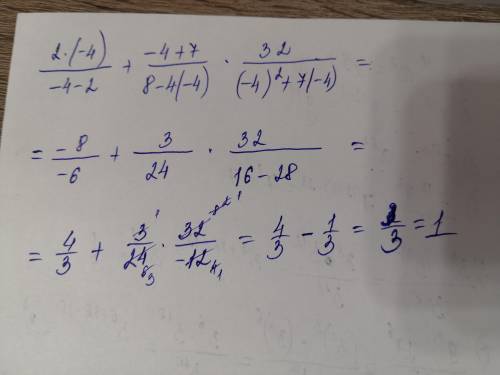 2·(-4)/-4-2 + -4+7/8-4(-4) · 32/(-4)²+7(-4) =
= -8/-6 + 3/24 · 32/16-28 =
= 4/3 + 3/24 · 32/-12 = 4/3 - 1/3 = 3/3 = 1